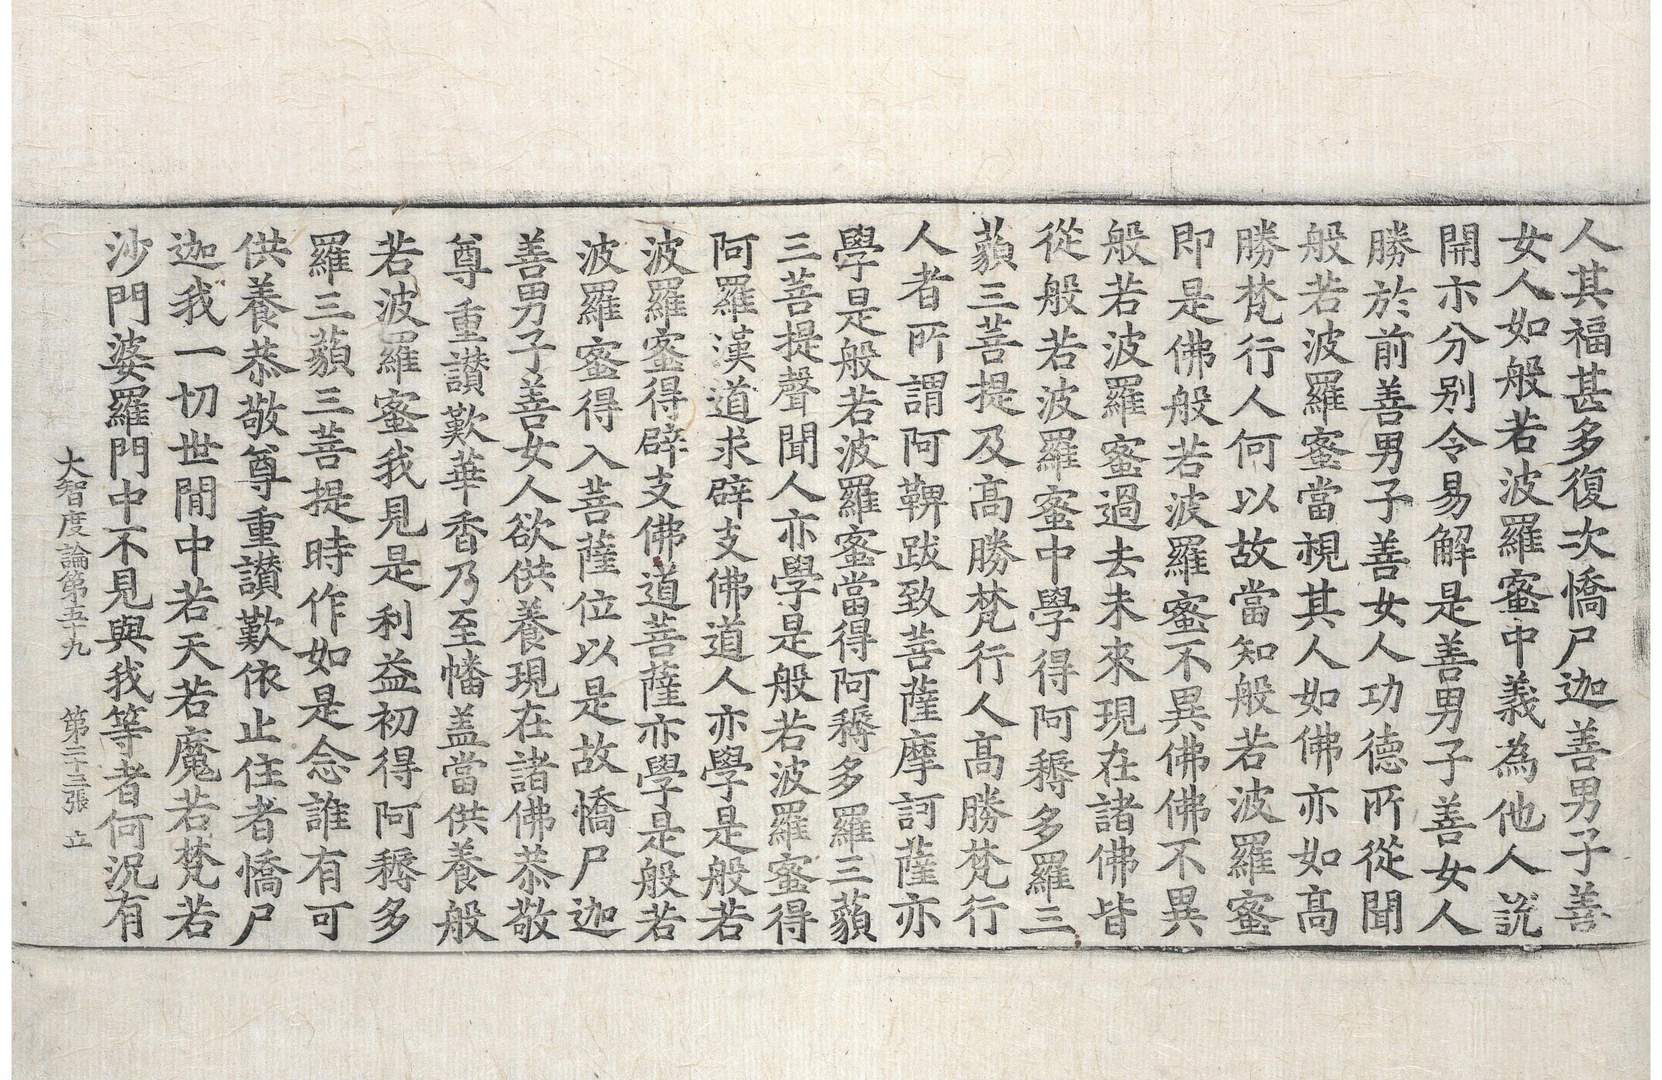 人其福甚多復次憍尸迦善男子善
女人如般若波羅蜜中義為他人說
開示分别令易解是善男子善女人
勝於前善男子善女人功德所從聞
般若波羅蜜當視其人如佛亦如高
勝梵行人何以故當知般若波羅蜜
即是佛般若波羅蜜不異佛佛不異
般若波羅蜜過去未來現在諸佛皆
從般若波羅蜜中學得阿耨多羅三
藐三菩提及高勝梵行人高勝梵行
人者所謂阿鞞跋致菩薩摩訶薩亦
學是般若波羅蜜當得阿耨多羅三藐
三菩提聲聞人亦學是般若波羅蜜得
阿羅漢道求辟支佛道人亦學是般若
波羅蜜得辟支佛道菩薩亦學是般若
波羅蜜得入菩薩位以是故憍尸迦
善男子善女人欲供養現在諸佛恭敬
尊重讃歎華香乃至幡盖當供養般
若波羅蜜我見是利益初得阿耨多
羅三藐三菩提時作如是念誰有可
供養恭敬尊重讃歎依止住者憍尸
迦我一切世間中若天若魔若梵若
沙門婆羅門中不見與我等者何況有
大智度論第五十九 第二十三張 立